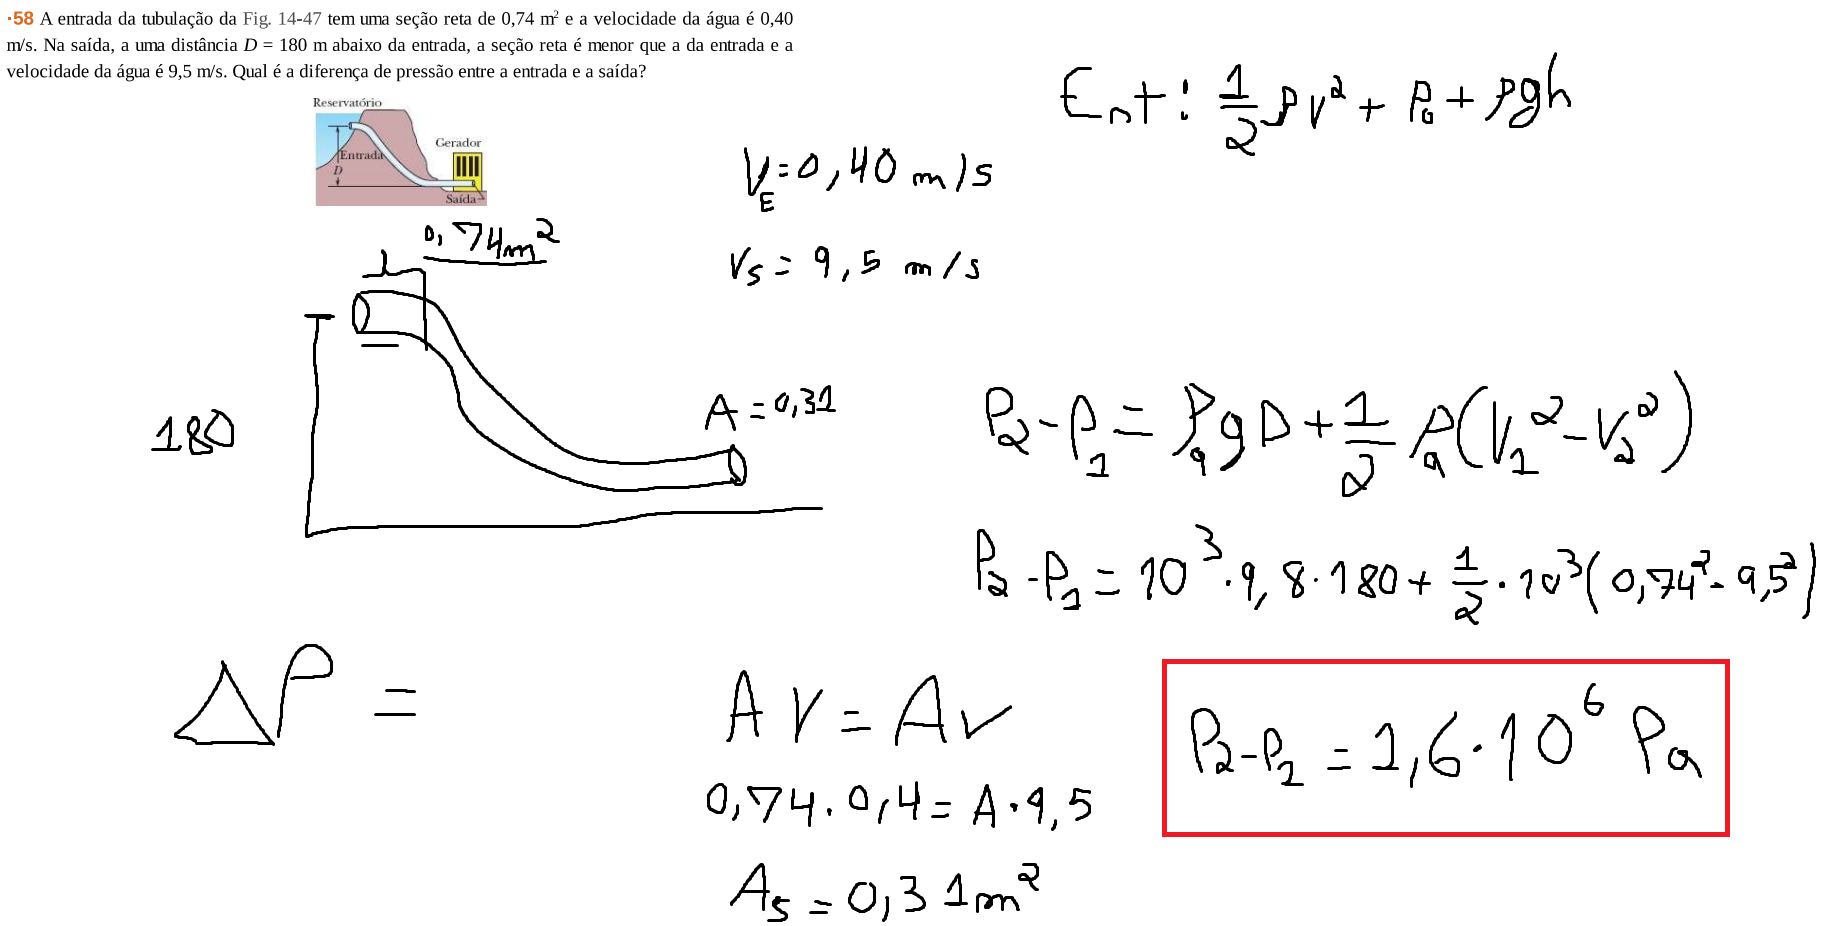 ·58 A entrada da tubulação da Fig. 14-47 tem uma seção reta de 0,74 m² e a velocidade da água é 0,40
m/s. Na saída, a uma distância D = 180 m abaixo da entrada, a seção reta é menor que a da entrada e a
velocidade da água é 9,5 m/s. Qual é a diferença de pressão entre a entrada e a saída?
Reservatório
Gerador
Entrada
D
Saída
Ent: 1/2 ρv² + P₀ + ρgh
V_E = 0,40 m/s
0,74m²
V_S = 9,5 m/s
180
A = 0,31
P₂ - P₁ = ρₐgD + 1/2 ρₐ(V₁² - V₂²)
P₂ - P₁ = 10³ · 9,8 · 180 + 1/2 · 10³(0,74² - 9,5²)
ΔP =
A V = A v
P₂ - P₁ = 1,6 · 10⁶ Pa
0,74 . 0,4 = A · 9,5
A_S = 0,31m²